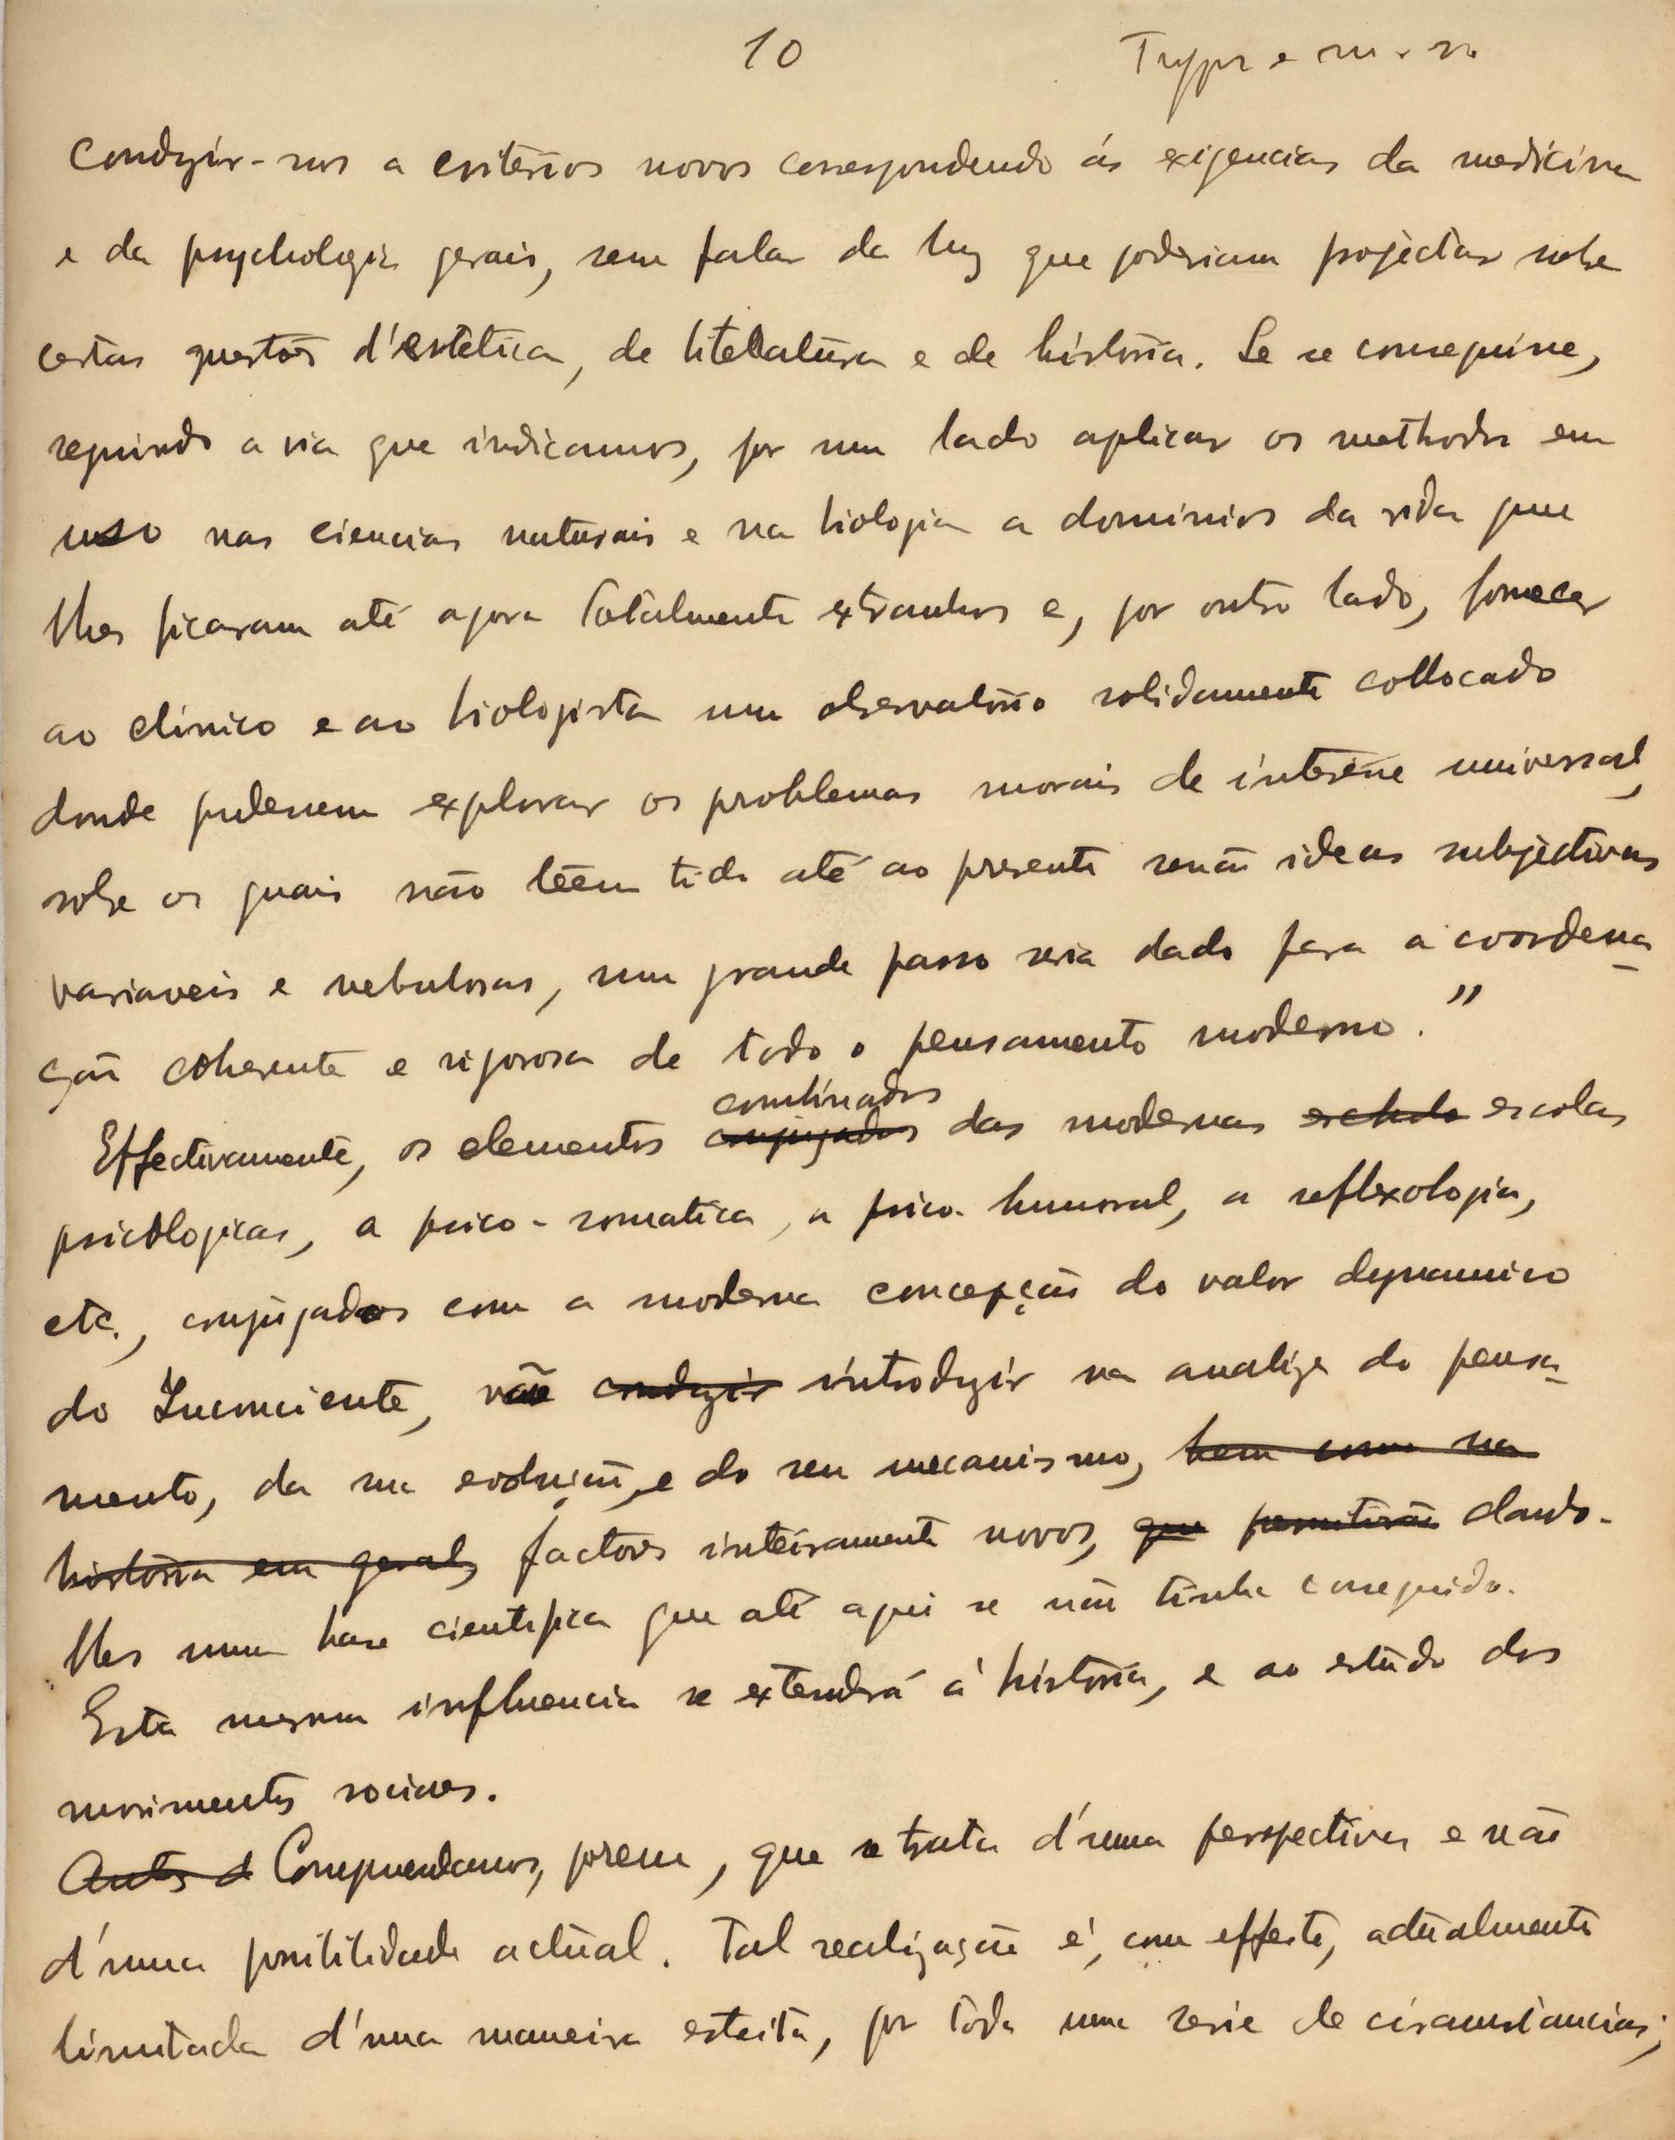 10
conduzir-nos a criterios novos correspondendo ás exigencias da medicina
e da psychologia gerais, sem falar da luz que poderiam projectar sobre
certas questões d'estetica, de literatura e de história. Se se conseguisse,
seguindo a via que indicamos, por um lado aplicar os methodos em
uso nas ciencias naturais e na biologia a dominios da vida que
lhes ficaram até agora totalmente extranhos e, por outro lado, fornecer
ao clínico e ao biologista um observatório solidamente collocado
donde pudessem explorar os problemas morais de interêsse universal,
sobre os quais não têem tido até ao presente senão ideas subjectivas
variaveis e nebulosas, um grande passo seria dado para a coordena-
ção coherente e rigorosa de todo o pensamento moderno."
combinados
Effectivamente, os elementos conjugados das modernas eschola escolas
psicologicas, a psico-somatica, a psico-humoral, a reflexologia,
etc., conjugados com a moderna concepção do valor dynamico
do Inconsciente, vão conduzir introduzir na analize do pensa-
mento, da sua evolução, e do seu mecanismo, bem como na
história em geral, factores inteiramente novos, que permitirão dando-
lhes uma base cientifica que até aqui se não tinha conseguido.
Esta mesma influencia se extenderá á história, e ao estudo dos
movimentos sociaes.
Antes d Compreendamos, porem, que se trata d'uma perspectiva e não
d'uma possibilidade actual. Tal realização é, com effeito, actualmente
limitada d'uma maneira estreita, por toda uma serie de circunstancias;